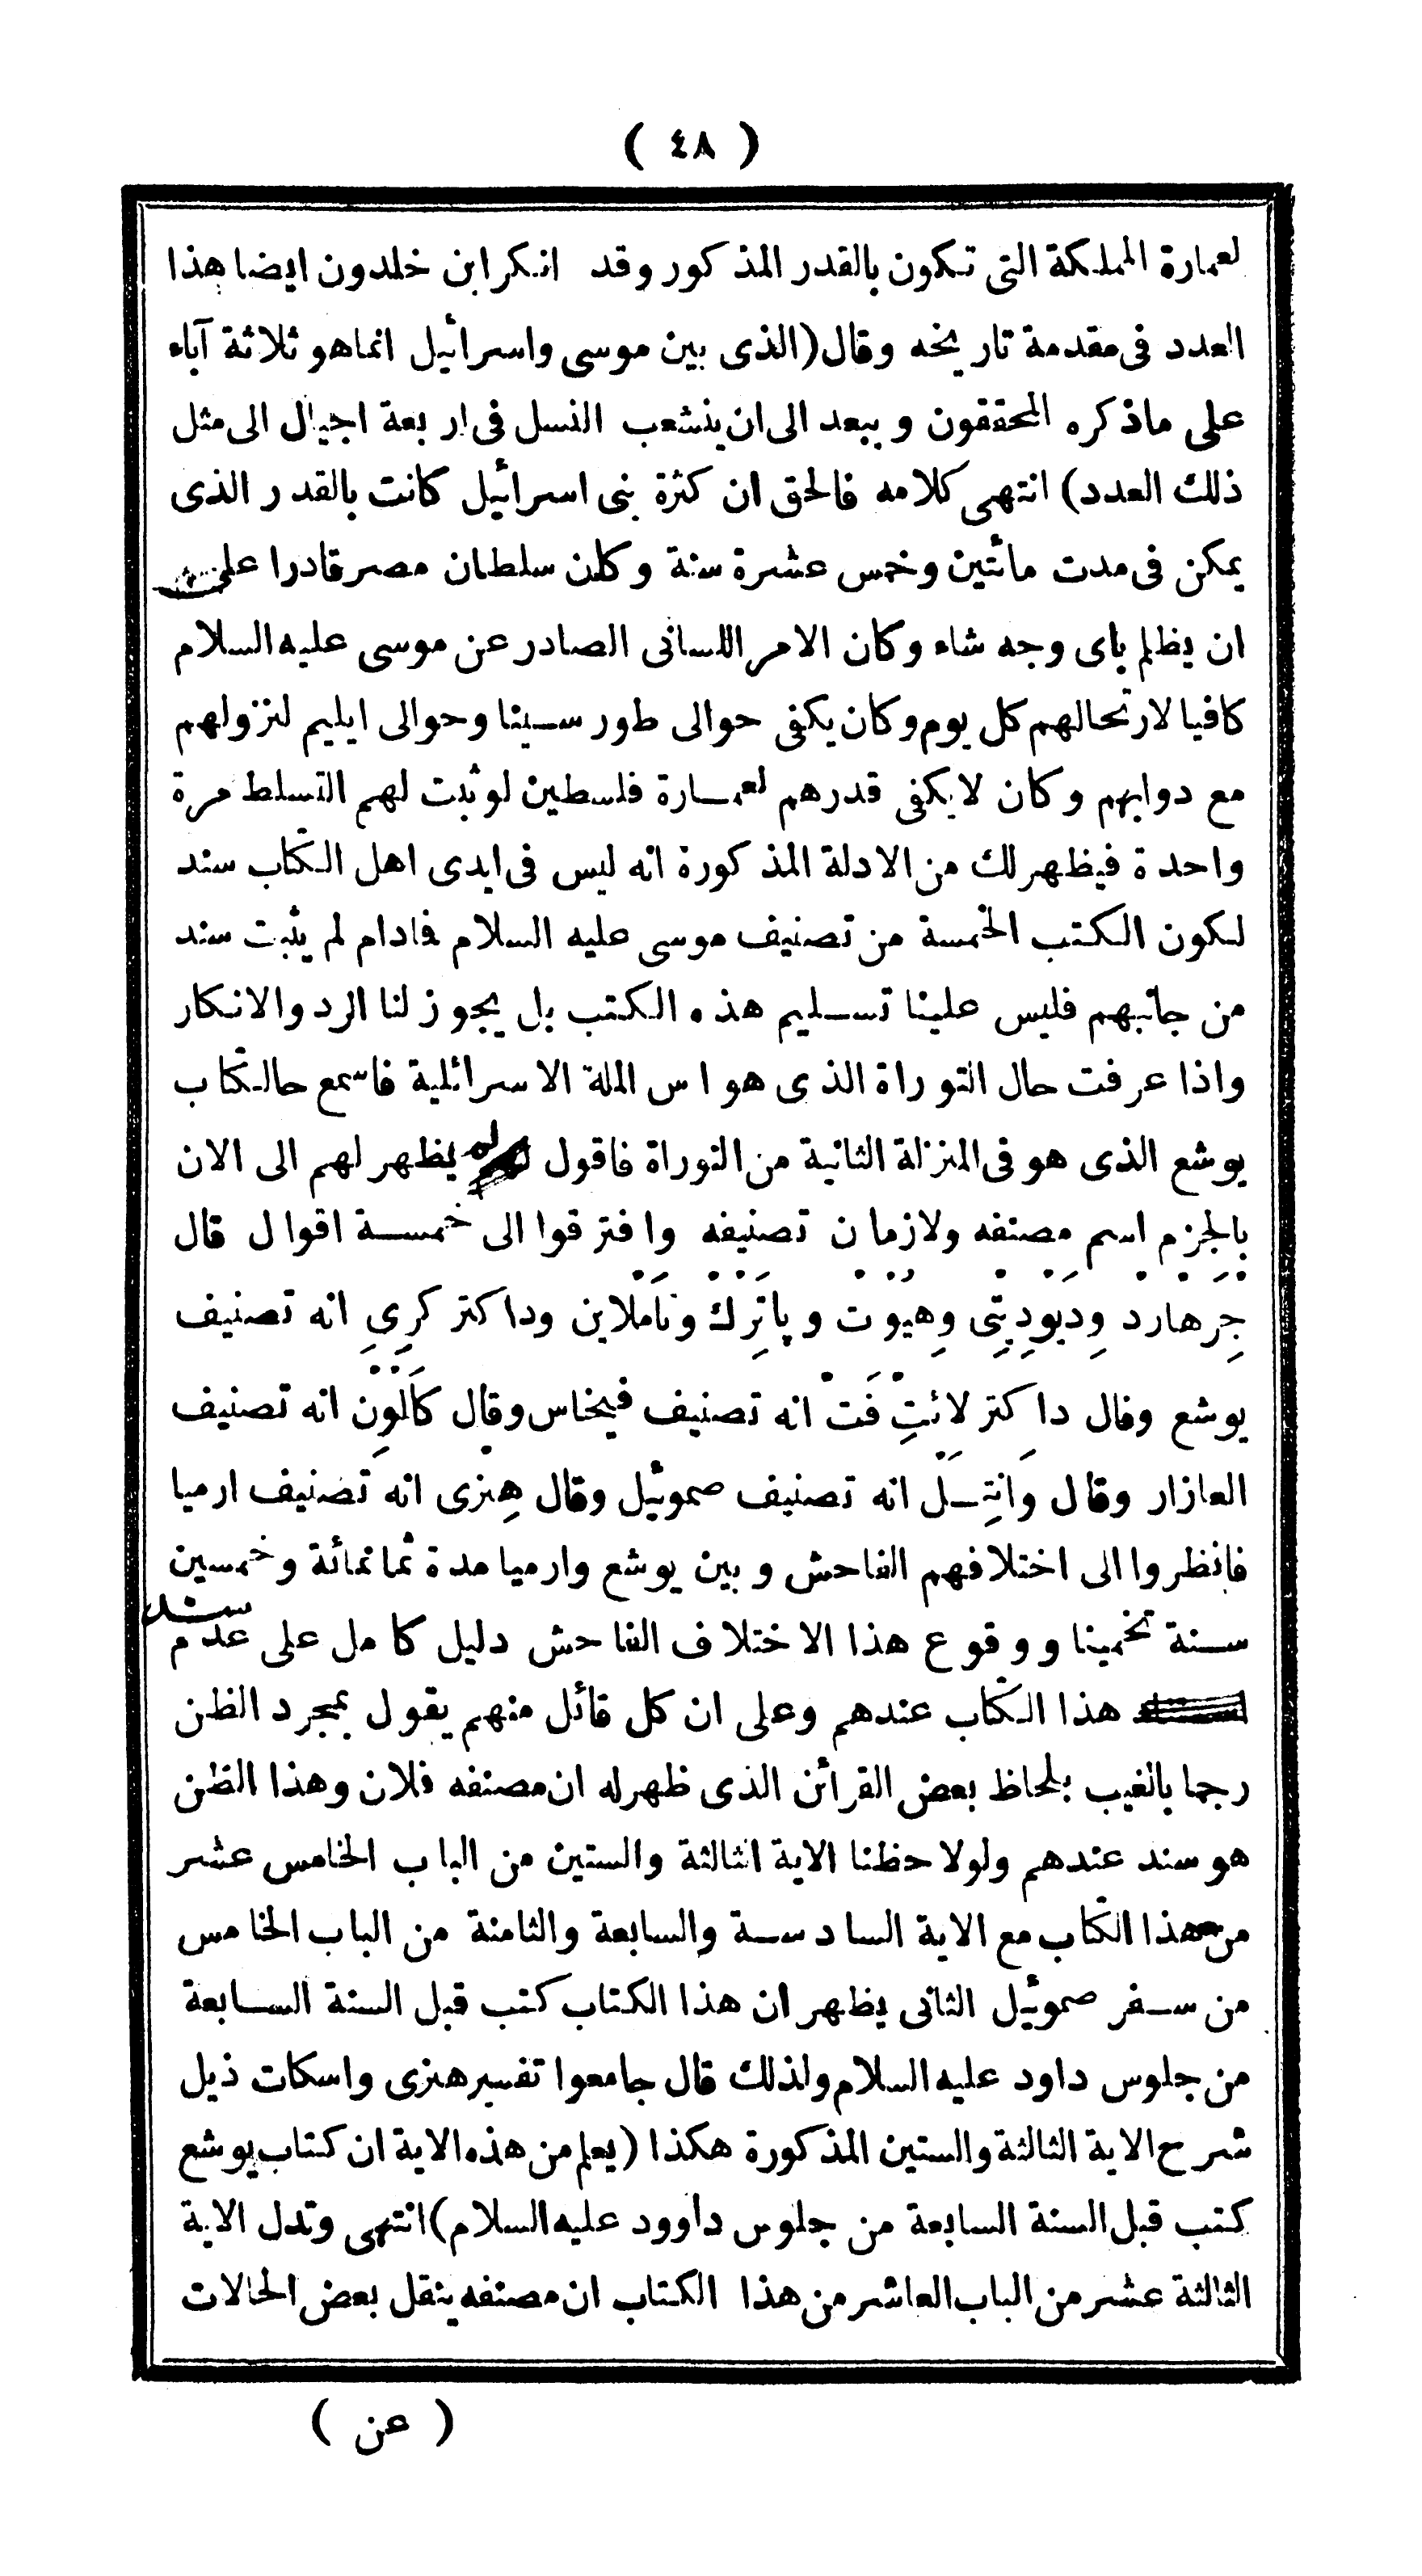 ( ٤٨ )
لعمارة المملكة التى تكون بالقدر المذكور وقد انكر ابن خلدون ايضا هذا
العدد فى مقدمة تاريخه وقال (الذى بين موسى واسرائيل انما هو ثلاثة آباء
على ماذكره المحققون ويبعد الى ان ينشعب النسل فى اربعة اجيال الى مثل
ذلك العدد) انتهى كلامه فالحق ان كثرة بنى اسرائيل كانت بالقدر الذى
يمكن فى مدت مائتين وخمس عشرة سنة وكان سلطان مصر قادرا على
ان يظلم باى وجه شاء وكان الامر اللسانى الصادر عن موسى عليه السلام
كافيا لارتحالهم كل يوم وكان يكفى حوالى طور سينا وحوالى ايليم لنزولهم
مع دوابهم وكان لايكفى قدرهم لعمارة فلسطين لو ثبت لهم التسلط مرة
واحدة فيظهر لك من الادلة المذكورة انه ليس فى ايدى اهل الكتاب سند
لكون الكتب الخمسة من تصنيف موسى عليه السلام فادام لم يثبت سند
من جانبهم فليس علينا تسليم هذه الكتب بل يجوز لنا الرد والانكار
واذا عرفت حال التوراة الذى هو اس الملة الاسرائلية فاسمع حال كتاب
يوشع الذى هو فى المنزلة الثانية من التوراة فاقول لم يظهر لهم الى الان
بالجزم اسم مصنفه ولازمان تصنيفه وافترقوا الى خمسة اقوال قال
جِرهارد وِديودِيتى وهِيوت و پاتِرك وتاملاين وداكتر كرِى انه تصنيف
يوشع وقال داكتر لائت فَت انه تصنيف فيخاس وقال كالون انه تصنيف
العازار وقال وانتِل انه تصنيف صموئيل وقال هِنرى انه تصنيف ارميا
فانظروا الى اختلافهم الفاحش وبين يوشع وارميا مدة ثمانمائة وخمسين
سنة تخمينا ووقوع هذا الاختلاف الفاحش دليل كامل على عدم سند
هذا الكتاب عندهم وعلى ان كل قائل منهم يقول بمجرد الظن
رجما بالغيب بلحاظ بعض القرائن الذى ظهر له ان مصنفه فلان وهذا الظن
هو سند عندهم ولولاحظنا الاية الثالثة والستين من الباب الخامس عشر
من هذا الكتاب مع الاية السادسة والسابعة والثامنة من الباب الخامس
من سفر صموئيل الثانى يظهر ان هذا الكتاب كتب قبل السنة السابعة
من جلوس داود عليه السلام ولذلك قال جامعوا تفسير هنرى واسكات ذيل
شرح الاية الثالثة والستين المذكورة هكذا (يعلم من هذه الاية ان كتاب يوشع
كتب قبل السنة السابعة من جلوس داوود عليه السلام) انتهى وتدل الاية
الثالثة عشر من الباب العاشر من هذا الكتاب ان مصنفه ينقل بعض الحالات
( عن )